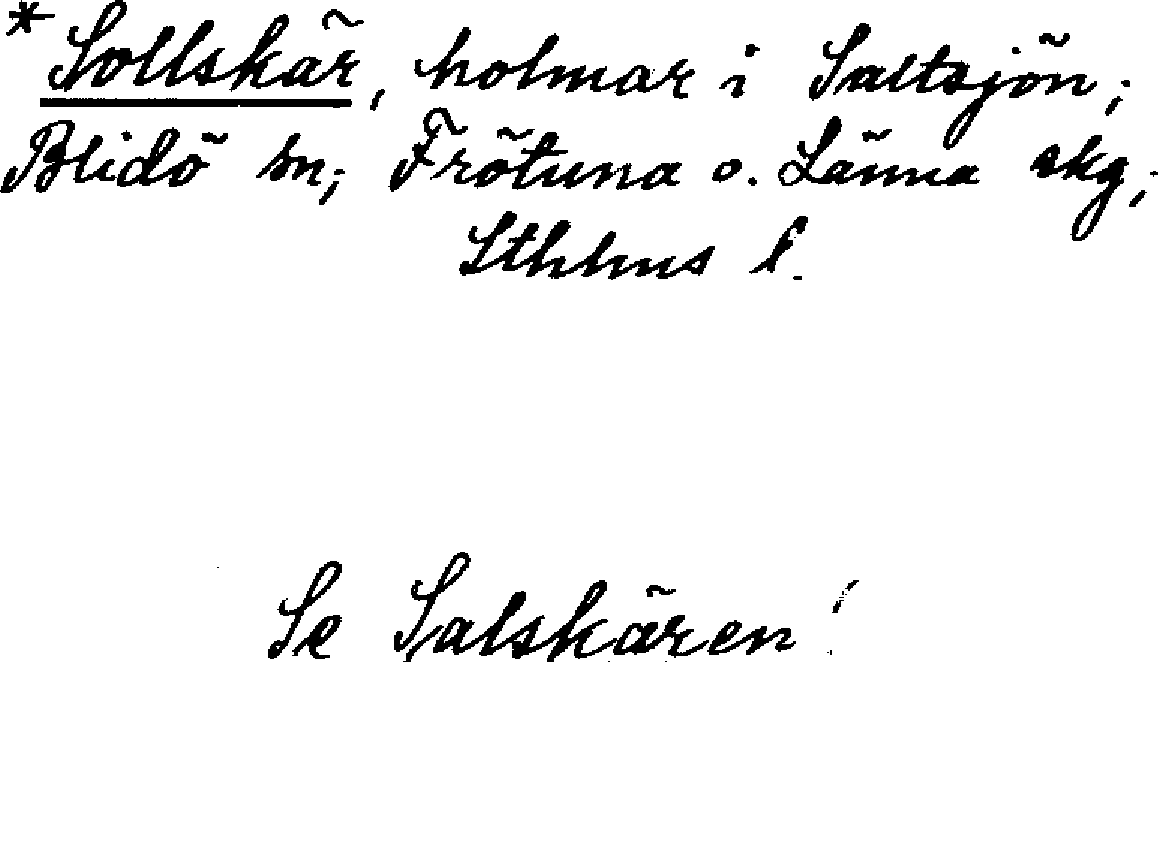 *Sollskär, holmar i Saltsjön;
Blidö sn; Frötuna o. Länna skg;
Sthlms l.
Se Salskären!